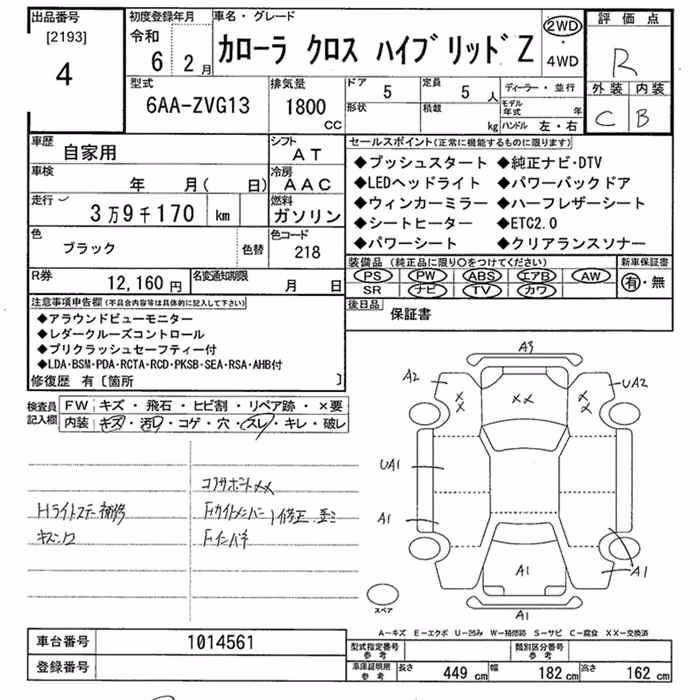 出品番号 初度登録年月 車名・グレード 評価点
[2193]
4
令和
6 2月
カローラ クロス ハイブリッドZ
2WD
・
4WD
R
外装 内装
C B
型式 排気量 ドア 定員
6AA-ZVG13 1800 cc
5 5 人
形状 積載 kg
ディーラー・並行
モデル年式 年
ハンドル 左・右
車歴 自家用
シフト AT
車検 年 月( 日)
冷房 AAC
走行 3万9千170 km
燃料 ガソリン
色 ブラック 色替
色コード 218
R券 12,160円
名変通知期限 月 日
セールスポイント(正常に機能するものに限ります)
◆プッシュスタート ◆純正ナビ・DTV
◆LEDヘッドライト ◆パワーバックドア
◆ウィンカーミラー ◆ハーフレザーシート
◆シートヒーター ◆ETC2.0
◆パワーシート ◆クリアランスソナー
装備品(純正品に限り○をつけてください) 新車保証書
PS PW ABS エアB AW
SR ナビ TV カワ
有・無
後日品 保証書
注意事項申告欄(不具合内容等は具体的に記入して下さい)
◆アラウンドビューモニター
◆レーダクルーズコントロール
◆プリクラッシュセーフティー付
◆LDA・BSM・PDA・RCTA・RCD・PKSB・SEA・RSA・AHB付
修復歴 有〔箇所 〕
検査員記入欄
FW キズ・飛石・ヒビ割・リペア跡・×要
内装 キズ・汚れ・コゲ・穴・スレ・キレ・破レ
コアサポートXX
Hライトステー補修
キズ、凹
A3
A2
UA2
XX
XX
XX
UA1
A1
A1
A1
A1
スペア
A-キズ E-エクボ U-凹み W-補修跡 S-サビ C-腐食 XX-交換済
車台番号 1014561
登録番号
型式指定番号
参考
類別区分番号
参考
車庫証明用
参考
長さ 449 cm 幅 182 cm 高さ 162 cm